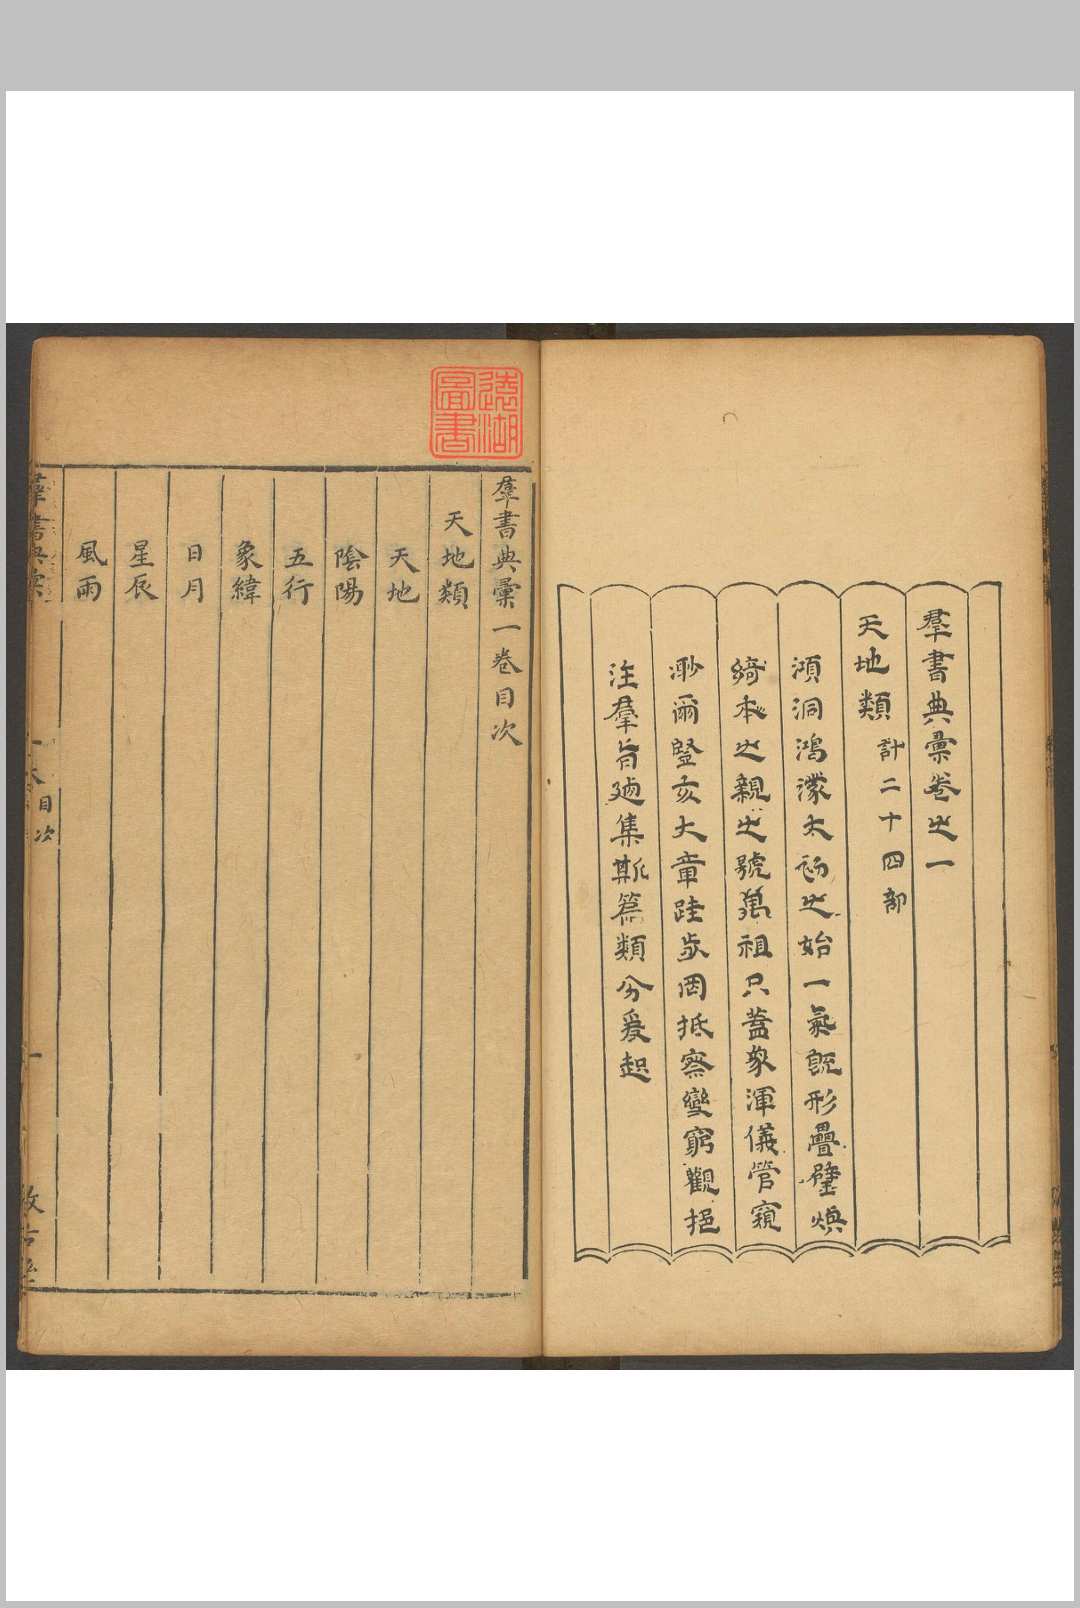 羣書典彙卷之一
天地類 計二十四部
澒洞鴻濛太初之始一氣旣形疊璧煥
綺本之親之號萬祖只蓋象渾儀管窺
渺爾豎亥大章跬步罔抵察變窮觀挹
注羣旨迺集斯篇類分爰起
遠湖圖書
羣書典彙一卷目次
天地類
天地
陰陽
五行
象緯
日月
星辰
風雨
羣書典彙
目次
一